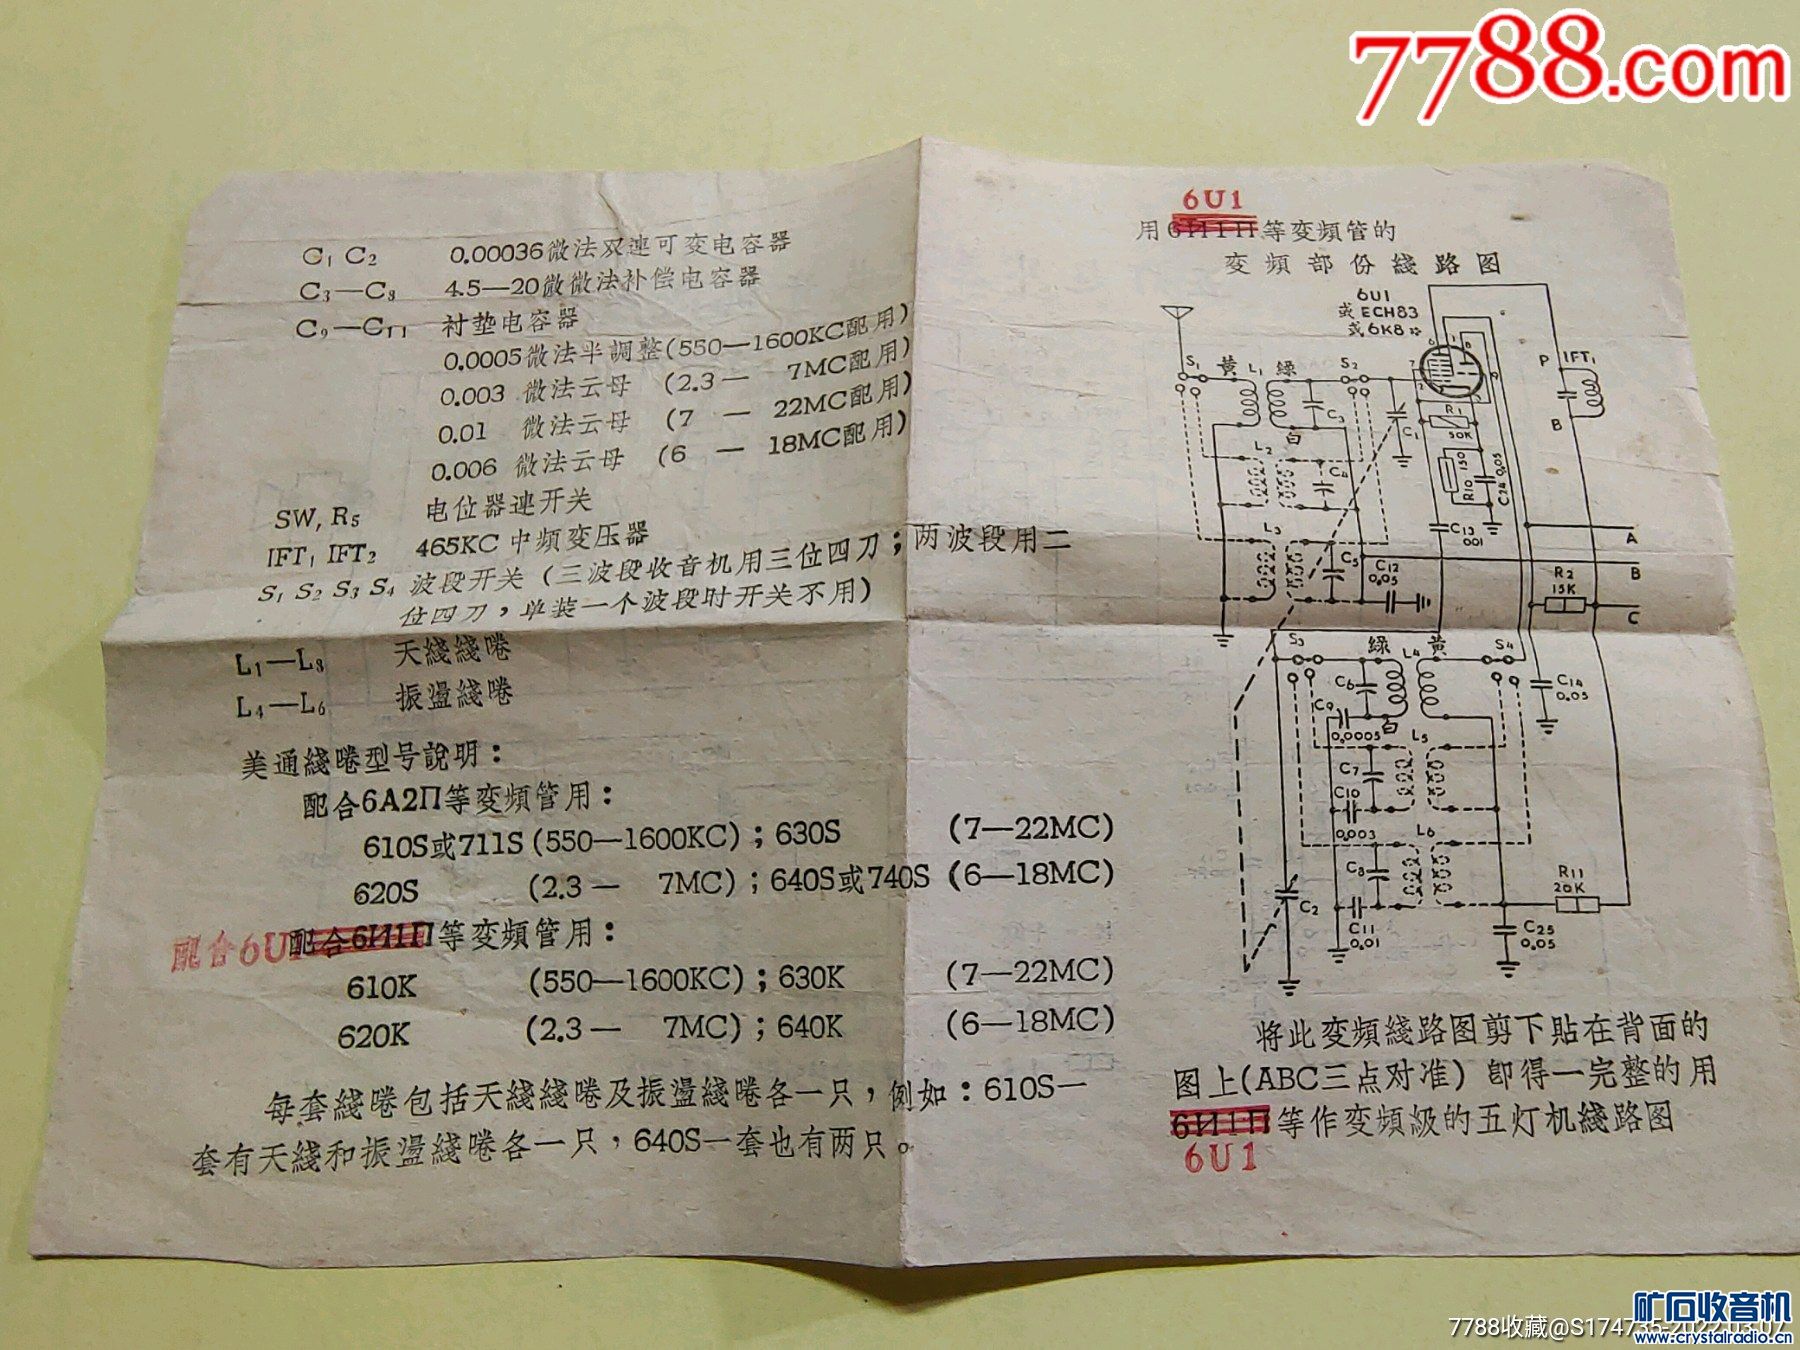 7788.com
C1 C2 0.00036微法双連可变电容器
C3—C8 4.5—20微微法补偿电容器
C9—C11 衬垫电容器
0.0005微法半調整(550—1600KC配用)
0.003 微法云母 (2.3— 7MC配用)
0.01 微法云母 (7 — 22MC配用)
0.006 微法云母 (6 — 18MC配用)
SW, R5 电位器連开关
IFT1 IFT2 465KC中頻变压器
S1 S2 S3 S4 波段开关 (三波段收音机用三位四刀；两波段用二
位四刀，单装一个波段时开关不用)
L1—L3 天綫綫啳
L4—L6 振盪綫啳
美通綫啳型号說明：
配合6A2П等变頻管用：
610S或711S (550—1600KC)；630S (7—22MC)
620S (2.3— 7MC)；640S或740S (6—18MC)
配合6U1
配合6И1П等变頻管用：
610K (550—1600KC)；630K (7—22MC)
620K (2.3— 7MC)；640K (6—18MC)
每套綫啳包括天綫綫啳及振盪綫啳各一只，例如：610S一
套有天綫和振盪綫啳各一只，640S一套也有两只。
6U1
用6И1П等变頻管的
变頻部份綫路图
6U1
或ECH83
或6K8
S1 黄 L1 绿 S2
C3
白
C1
R1
50K
R10 150
C24 0.05
P
IFT1
B
L2
C4
L3
C5
C12
0.05
C13
001
A
B
R2
15K
C
S3 绿 L4 黄 S4
C6
C9
0.0005
白
C14
0.05
L5
C7
C10
0.003
L6
C8
C11
0.01
C2
R11
20K
C25
0.05
将此变頻綫路图剪下貼在背面的
图上(ABC三点对准) 卽得一完整的用
6И1П等作变頻級的五灯机綫路图
6U1
7788收藏@S174735-2022.03.07
矿石收音机
www.crystalradio.cn